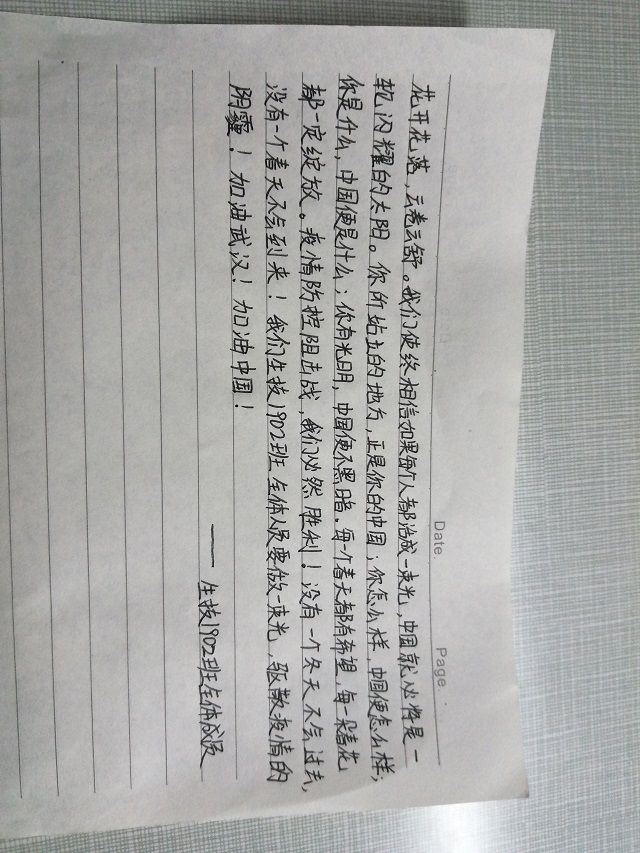 Date. Page
花开花落，云卷云舒。我们使终相信如果每个人都活成一束光，中国就必将是一
轮闪耀的太阳。你所站立的地方，正是你的中国；你怎么样，中国便怎么样；
你是什么，中国便是什么；你有光明，中国便不黑暗。每个春天都有希望，每一朵春花
都一定绽放。疫情防控阻击战，我们必然胜利！没有一个冬天不会过去，
没有一个春天不会到来！我们生技1902班全体人员要做一束光，驱散疫情的
阴霾！加油武汉！加油中国！
——生技1902班全体成员